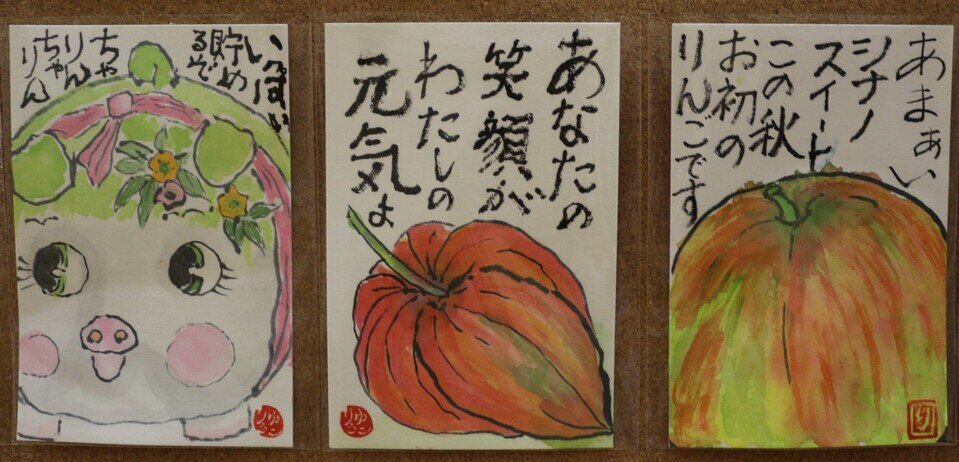 いっぱい
貯め
るぞ
ちゃ
りん
ちゃ
りん
あなたの
笑顔が
わたしの
元気よ
あまぁい
シナノ
スイート
この秋
お初の
りんごです